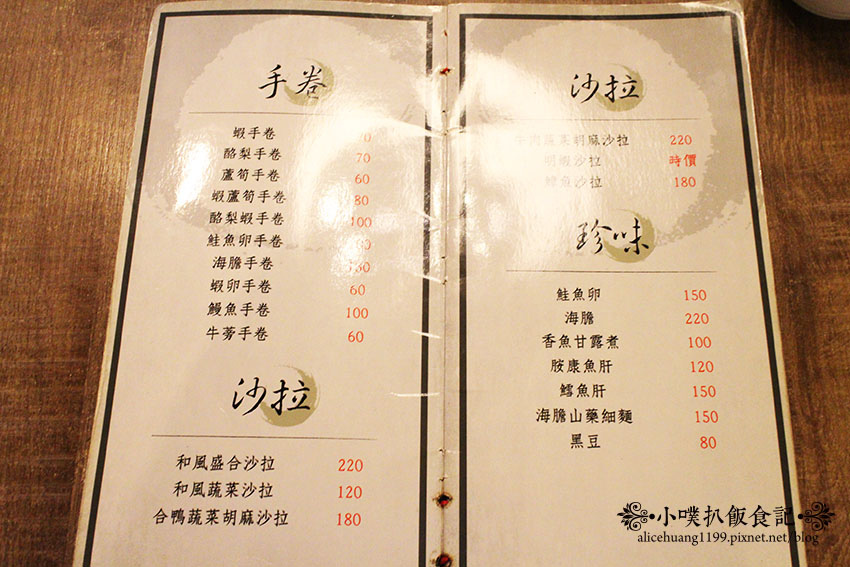 手卷
蝦手卷
酪梨手卷 70
蘆筍手卷 60
蝦蘆筍手卷 80
酪梨蝦手卷 100
鮭魚卵手卷
海膽手卷
蝦卵手卷 60
鰻魚手卷 100
牛蒡手卷 60
沙拉
和風盛合沙拉 220
和風蔬菜沙拉 120
合鴨蔬菜胡麻沙拉 180
沙拉
牛肉蔬菜胡麻沙拉 220
沙拉 時價
魚沙拉 180
珍味
鮭魚卵 150
海膽 220
香魚甘露煮 100
胺康魚肝 120
鱈魚肝 150
海膽山藥細麵 150
黑豆 80
小噗扒飯食記
alicehuang1199.pixnet.net/blog